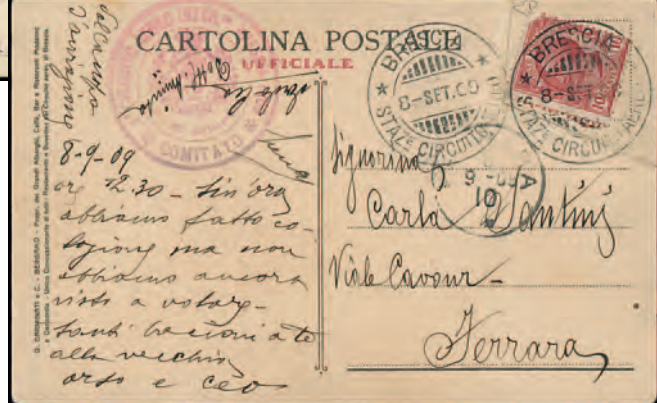 CARTOLINA POSTALE
UFFICIALE
COMITATO
BRESCIA
8-SET.09
STAZe CIRCUITO AEREO
BRESCIA
8-SET
STAZe CIRCUITO AEREO
Dal campo
8-9-09
ore 12.30 - Sin'ora
abbiamo fatto co-
lazione ma non
abbiamo ancora
visto a volare -
Tanti bacioni a te
alla vecchia
orso e ceo
Signorina
Carla Santini
Viale Cavour -
Ferrara